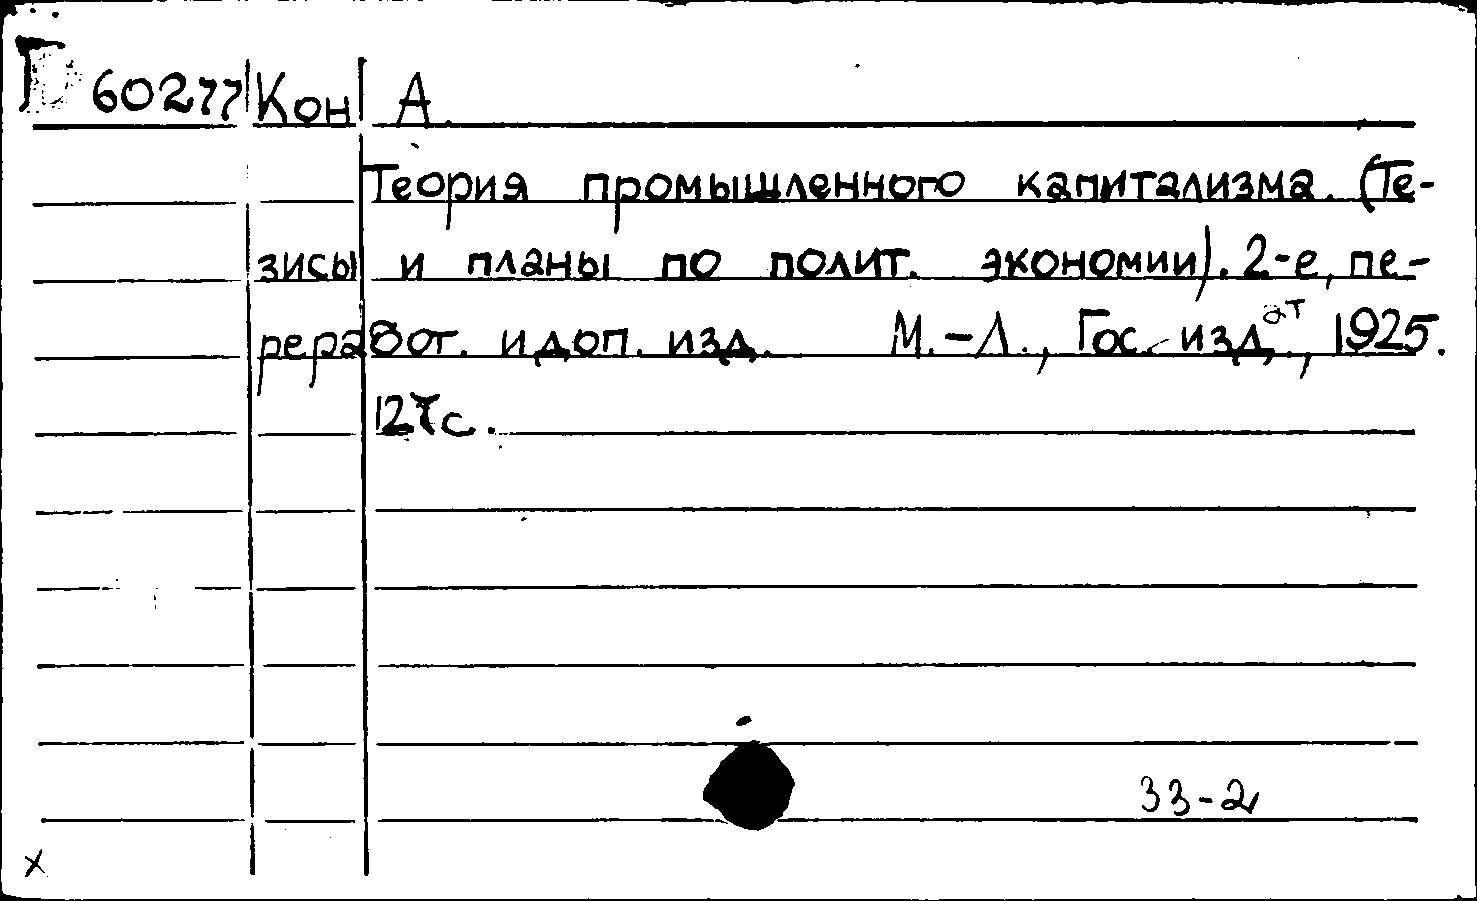 60277 Кон А.
Теория промышленного капитализма. (Те-
зисы и планы по полит. экономии). 2-е, пе-
реработ. и доп. изд. М.-Л., Гос. издат., 1925.
с.
33-2
x